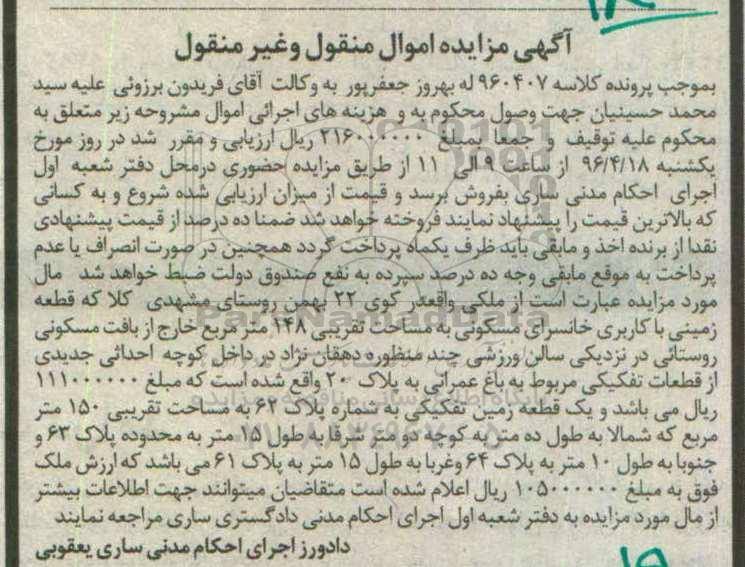 آگهی مزایده اموال منقول وغیر منقول
بموجب پرونده کلاسه ۹۶۰۴۰۷ له بهروز جعفرپور به وکالت آقای فریدون برزوئی علیه سید
محمد حسینیان جهت وصول محکوم به و هزینه های اجرائی اموال مشروحه زیر متعلق به
محکوم علیه توقیف و جمعا بمبلغ ۲۱۶۰۰۰۰۰۰ ریال ارزیابی و مقرر شد در روز مورخ
یکشنبه ۹۶/۴/۱۸ از ساعت ۹ الی ۱۱ از طریق مزایده حضوری درمحل دفتر شعبه اول
اجرای احکام مدنی ساری بفروش برسد و قیمت از میزان ارزیابی شده شروع و به کسانی
که بالاترین قیمت را پیشنهاد نمایند فروخته خواهد شد ضمنا ده درصد از قیمت پیشنهادی
نقدا از برنده اخذ و مابقی باید ظرف یکماه پرداخت گردد همچنین در صورت انصراف یا عدم
پرداخت به موقع مابقی وجه ده درصد سپرده به نفع صندوق دولت ضبط خواهد شد مال
مورد مزایده عبارت است از ملکی واقعدر کوی ۲۲ بهمن روستای مشهدی کلا که قطعه
زمینی با کاربری خانسرای مسکونی به مساحت تقریبی ۱۴۸ متر مربع خارج از بافت مسکونی
روستائی در نزدیکی سالن ورزشی چند منظوره دهقان نژاد در داخل کوچه احداثی جدیدی
از قطعات تفکیکی مربوط به باغ عمرانی به پلاک ۲۰ واقع شده است که مبلغ ۱۱۱۰۰۰۰۰۰
ریال می باشد و یک قطعه زمین تفکیکی به شماره پلاک ۶۲ به مساحت تقریبی ۱۵۰ متر
مربع که شمالا به طول ده متر به کوچه دو متر شرقا به طول ۱۵ متر به محدوده پلاک ۶۳ و
جنوبا به طول ۱۰ متر به پلاک ۶۴ وغربا به طول ۱۵ متر به پلاک ۶۱ می باشد که ارزش ملک
فوق به مبلغ ۱۰۵۰۰۰۰۰۰ ریال اعلام شده است متقاضیان میتوانند جهت اطلاعات بیشتر
از مال مورد مزایده به دفتر شعبه اول اجرای احکام مدنی دادگستری ساری مراجعه نمایند
دادورز اجرای احکام مدنی ساری یعقوبی
ParsNamadData